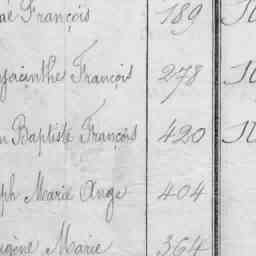 François 189
Hyacinthe François 278
Baptiste François 420
Marie Ange 404
Eugène Marie 364